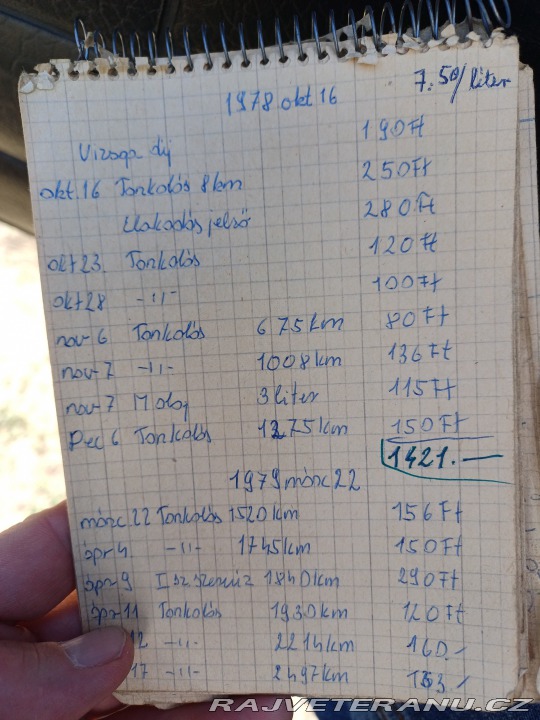 7.50/liter
1978 okt 16
Vizsga díj 190Ft
okt.16 Tankolás 8km 250Ft
Elakadásjelső 280Ft
okt 23. Tankolás 120Ft
okt 28 -"- 100Ft
nov 6 Tankolás 675km 80Ft
nov 7 -"- 1008km 136Ft
nov 7 M olaj 3liter 115Ft
Dec 6 Tankolás 1275km 150Ft
1421.—
1979 márc 22
márc.22 Tankolás 1520km 156Ft
ápr 4 -"- 1745km 150Ft
ápr 9 II sz szerviz 1840km 290Ft
ápr 11 Tankolás 1930km 120Ft
12 -"- 2214km 160.-
17 -"- 2497km
RAJVETERANU.CZ